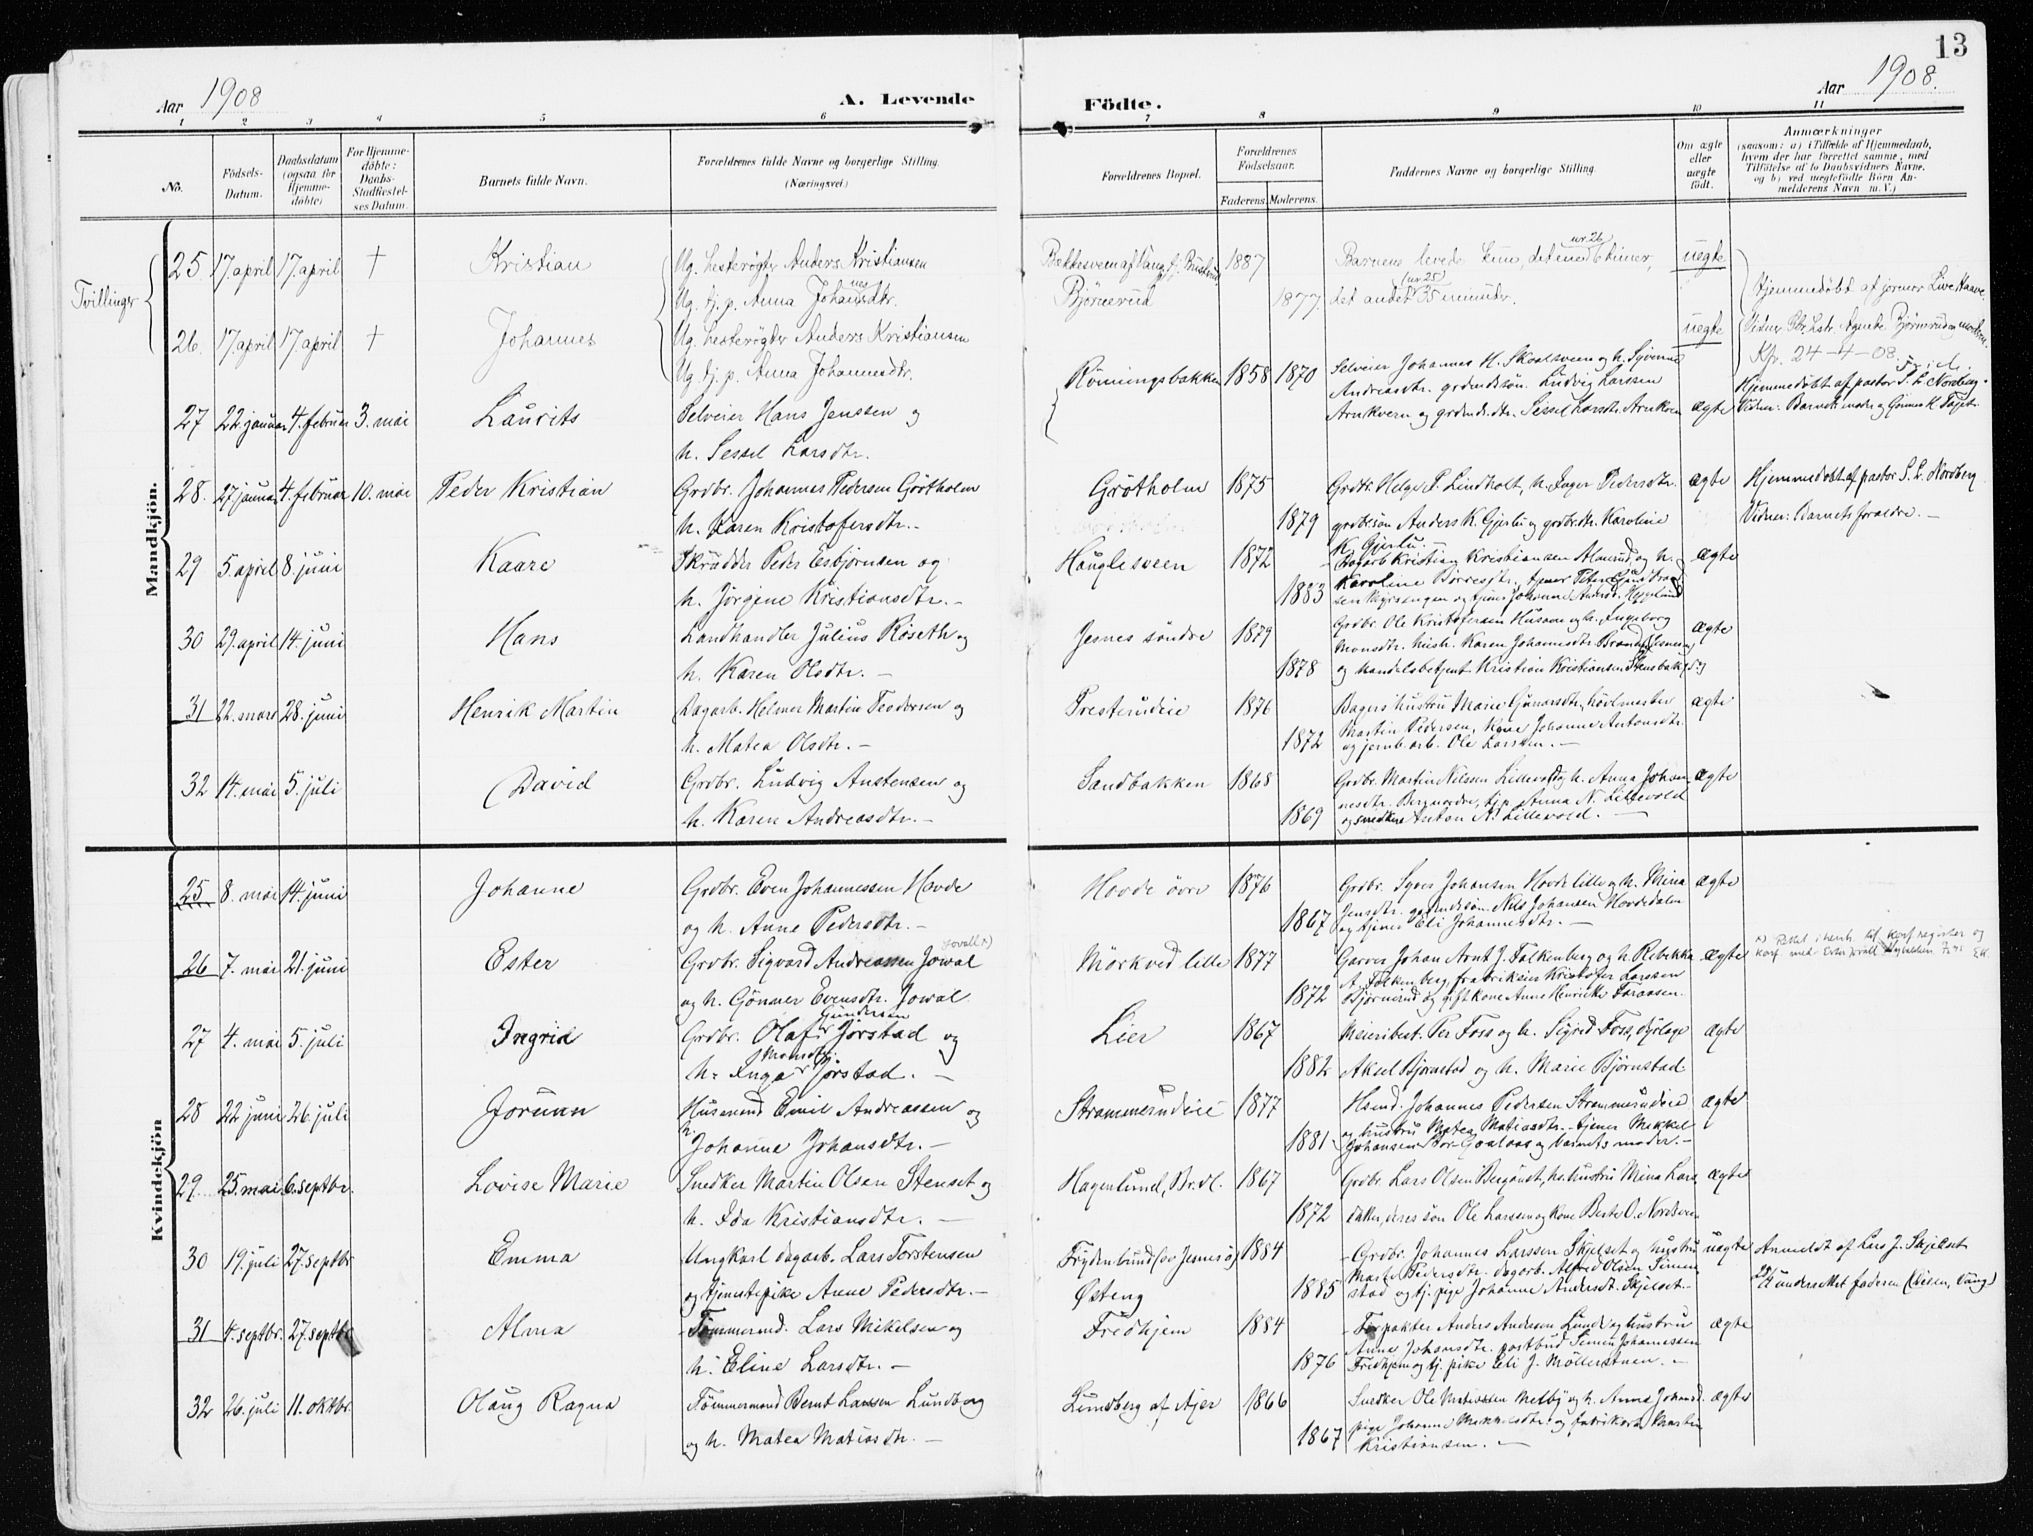 13
Aar 1908
A. Levende
Födte.
Aar 1908.
1 2 3 4 5 6 7 8 9 10 11
No.
Födsels-Datum.
Daabsdatum (ogsaa for Hjemme-döbte)
For Hjemme-döbte: Daabs-Stadfæstel-ses Datum.
Barnets fulde Navn.
Forældrenes fulde Navne og borgerlige Stilling. (Næringsvei)
Forældrenes Bopæl.
Forældrenes Födselsaar.
Faderens. Moderens.
Faddernes Navne og borgerlige Stilling.
Om ægte eller uægte födt.
Anmærkninger
(saasom: a) i Tilfælde af Hjemmedaab, hvem der har forrettet samme, med Tilföielse af to Daabsvidners Navne, og b) ved uægtefödte Börn An-melderens Navn m. V.)
Mandkjön.
Tvillinger
25 17. april 17. april † Kristian
Ug. hesterögter Anders Kristiansen
Ug. tj. p. Anna Johannesdtr.
Bjørnerud
1887 1877.
Barnens levede kun, det ene nr. 26 6 timer,
det andet (nr 25) 35 minuter.
uegte
Hjemmedøbt af jormor Live Haave.
26. 17. april 17. april † Johannes
Ug. hesterögter Anders Kristiansen
Ug. tj. p. Anna Johannesdtr.
uegte
Kfr. 24-4-08.
27 22. januar 4. februar 3. mai Laurits
Selveier Hans Jenssen og
h. Sessel Larsdtr.
Rönningsbakken 1858 1870
Selveier Johannes H. Skoalsveen og h. Syverine
Andreasdtr. grdmdsön. Ludvig Larssen
Arnkvern og grdmd.dtr. Sessel Larsdtr. Arnkvern
ægte
Hjemmedöbt af pastor S. L. Nordberg.
Vidner: Barnets moder og Gunnes K. Foget.
28. 27 januar 4. februar 10. mai Peder Kristian
Grdbr. Johannes Pedersen Grötholm
h. Karen Kristofersdtr.
Grötholm 1875 1879
Grdbr. Helge P. Lindholt, h. Inger Pedersdtr.
grdbr.sön Anders K. Gjerlu og grdbr.dtr. Karoline
K. Gjerlu.
ægte
Hjemmedöbt af pastor S. L. Nordberg
Vidner: Barnets foraldre.
29 5. april 8. juni Kaare
Skrædder Peder Esbjörnsen og
h. Jörgine Kristiansdtr.
Hauglesveen 1872 1883
Dagarb. Kristian Kristiansen Almerud og h.
Karoline Börresdtr.
ægte
30 29. april 14. juni Hans
Landhandler Julius Röseth og
h. Karen Olsdtr.
Jesnes söndre 1879 1878
Grdbr. Ole Kristofersen Husum og h. Ingeborg
Monsdtr. hustr. Karen Johannesdtr.
og handelsbetjent Kristian Kristiansen Stensbak
ægte
31 22. mars 28. juni Henrik Martin
Dagarb. Helmer Martin Teodorsen og
h. Matea Olsdtr.
Presterudeie 1876 1872
Bagers hustru Marie Gunarsdtr., hövlmester
Martin Pedersen, Kone Johanne Antonsdtr.
og jernb.arb. Ole Larssen.
ægte
32 14. mai 5. juli David
Grdbr. Ludvig Anstensen og
h. Karen Andreasdtr.
Sandbakken 1868 1869
Grdbr. Martin Nilssen Lillevold og h. Anna Johan-
nesdtr. Berg nordre, tj.p. Anna N. Lillevold
og snedker Anton N. Lillevold.
ægte
Kvindekjön
25 8. mai 14. juni Johanne
Grdbr. Even Johannessen Hovde
og h. Anne Pedersdtr.
Hovde övre 1876 1867
Grdbr. Syver Johansen Hovde lille og h. Mina
Jensdtr. grdmdsön. Nils Johansen Hovdedalen
og tjener Eli Johannesdtr.
ægte
26 7. mai 21. juni Ester
Grdbr. Sigvard Andreassen Jowal
og h. Gönner Evensdtr. Jowal
Mörkved lille 1877 1872
Garver Johan Arnt J. Falkenberg og h. Rebekka
A. Falkenberg, fabrikeier Kristofer Larssen
Björnerud og gift kone Anne Henrikke Foraasen.
ægte
27 4. mai 5. juli Ingrid
Grdbr. Olaf Gundersen Jörstad og
h. Inga Monsdtr. Jörstad.
Lier 1867 1882
Meieribest. Per Foss og h. Sigrid Foss, dyrlæge
Aksel Bjørnstad og h. Marie Bjørnstad
ægte
28 22. juni 26. juli Jorunn
Husmand Emil Andreassen og
h. Johanne Johansdtr.
Strammerudeie 1877 1881
Hsmd. Johannes Pedersen Strammerudeie
og hustru Matea Matiasdtr. tjener Mikkel
Johansen og barnets moder.
ægte
29. 25. mai 6. septbr. Lovise Marie
Snedker Martin Olsen Stenset og
h. Ida Kristiansdtr.
Hagenlund, Br.dl. 1867 1872
Grdbr. Lars Olsen Bergönst, hs. hustru Mina Lars
datter, deres sön Ole Larssen og kone Berte O. Nordsveen
ægte
30 19. juli 27. septbr Emma
Ungkarl dagarb. Lars Torstensen
og tjenestepike Anne Pedersdtr.
Frydenlund (sv Jesnes ø)
Østeng
1884 1885
Grdbr. Johannes Larssen Skjelset og hustru
Marte Pedersdtr. dagarb. Alfred Olsen Simen-
stad og tj. pige Johanne Andersdt. Skjelset.
uægte
Anmeldt af Lars J. Skjelset
31 4. septbr. 27. septbr Alma
Tømmermd. Lars Mikelsen og
h. Eline Larsdtr.
Fredhjem 1884 1876
Forpakter Anders Andersen Lunde og hustru
Anne Johansdtr. postbud Simen Johannessen
Fredhjem og tj. pike Eli J. Möllerstuen.
ægte
32 26. juli 11. oktbr. Olaug Ragna
Tømmermand Bernt Larssen Lundberg
og h. Matea Matiasdtr.
Lundberg af Ajer 1866 1867
Snedker Ole Matiassen Melby og h. Anne Johansd.
pige Johanne og fabrikarb. Martin
Kristiansen.
ægte